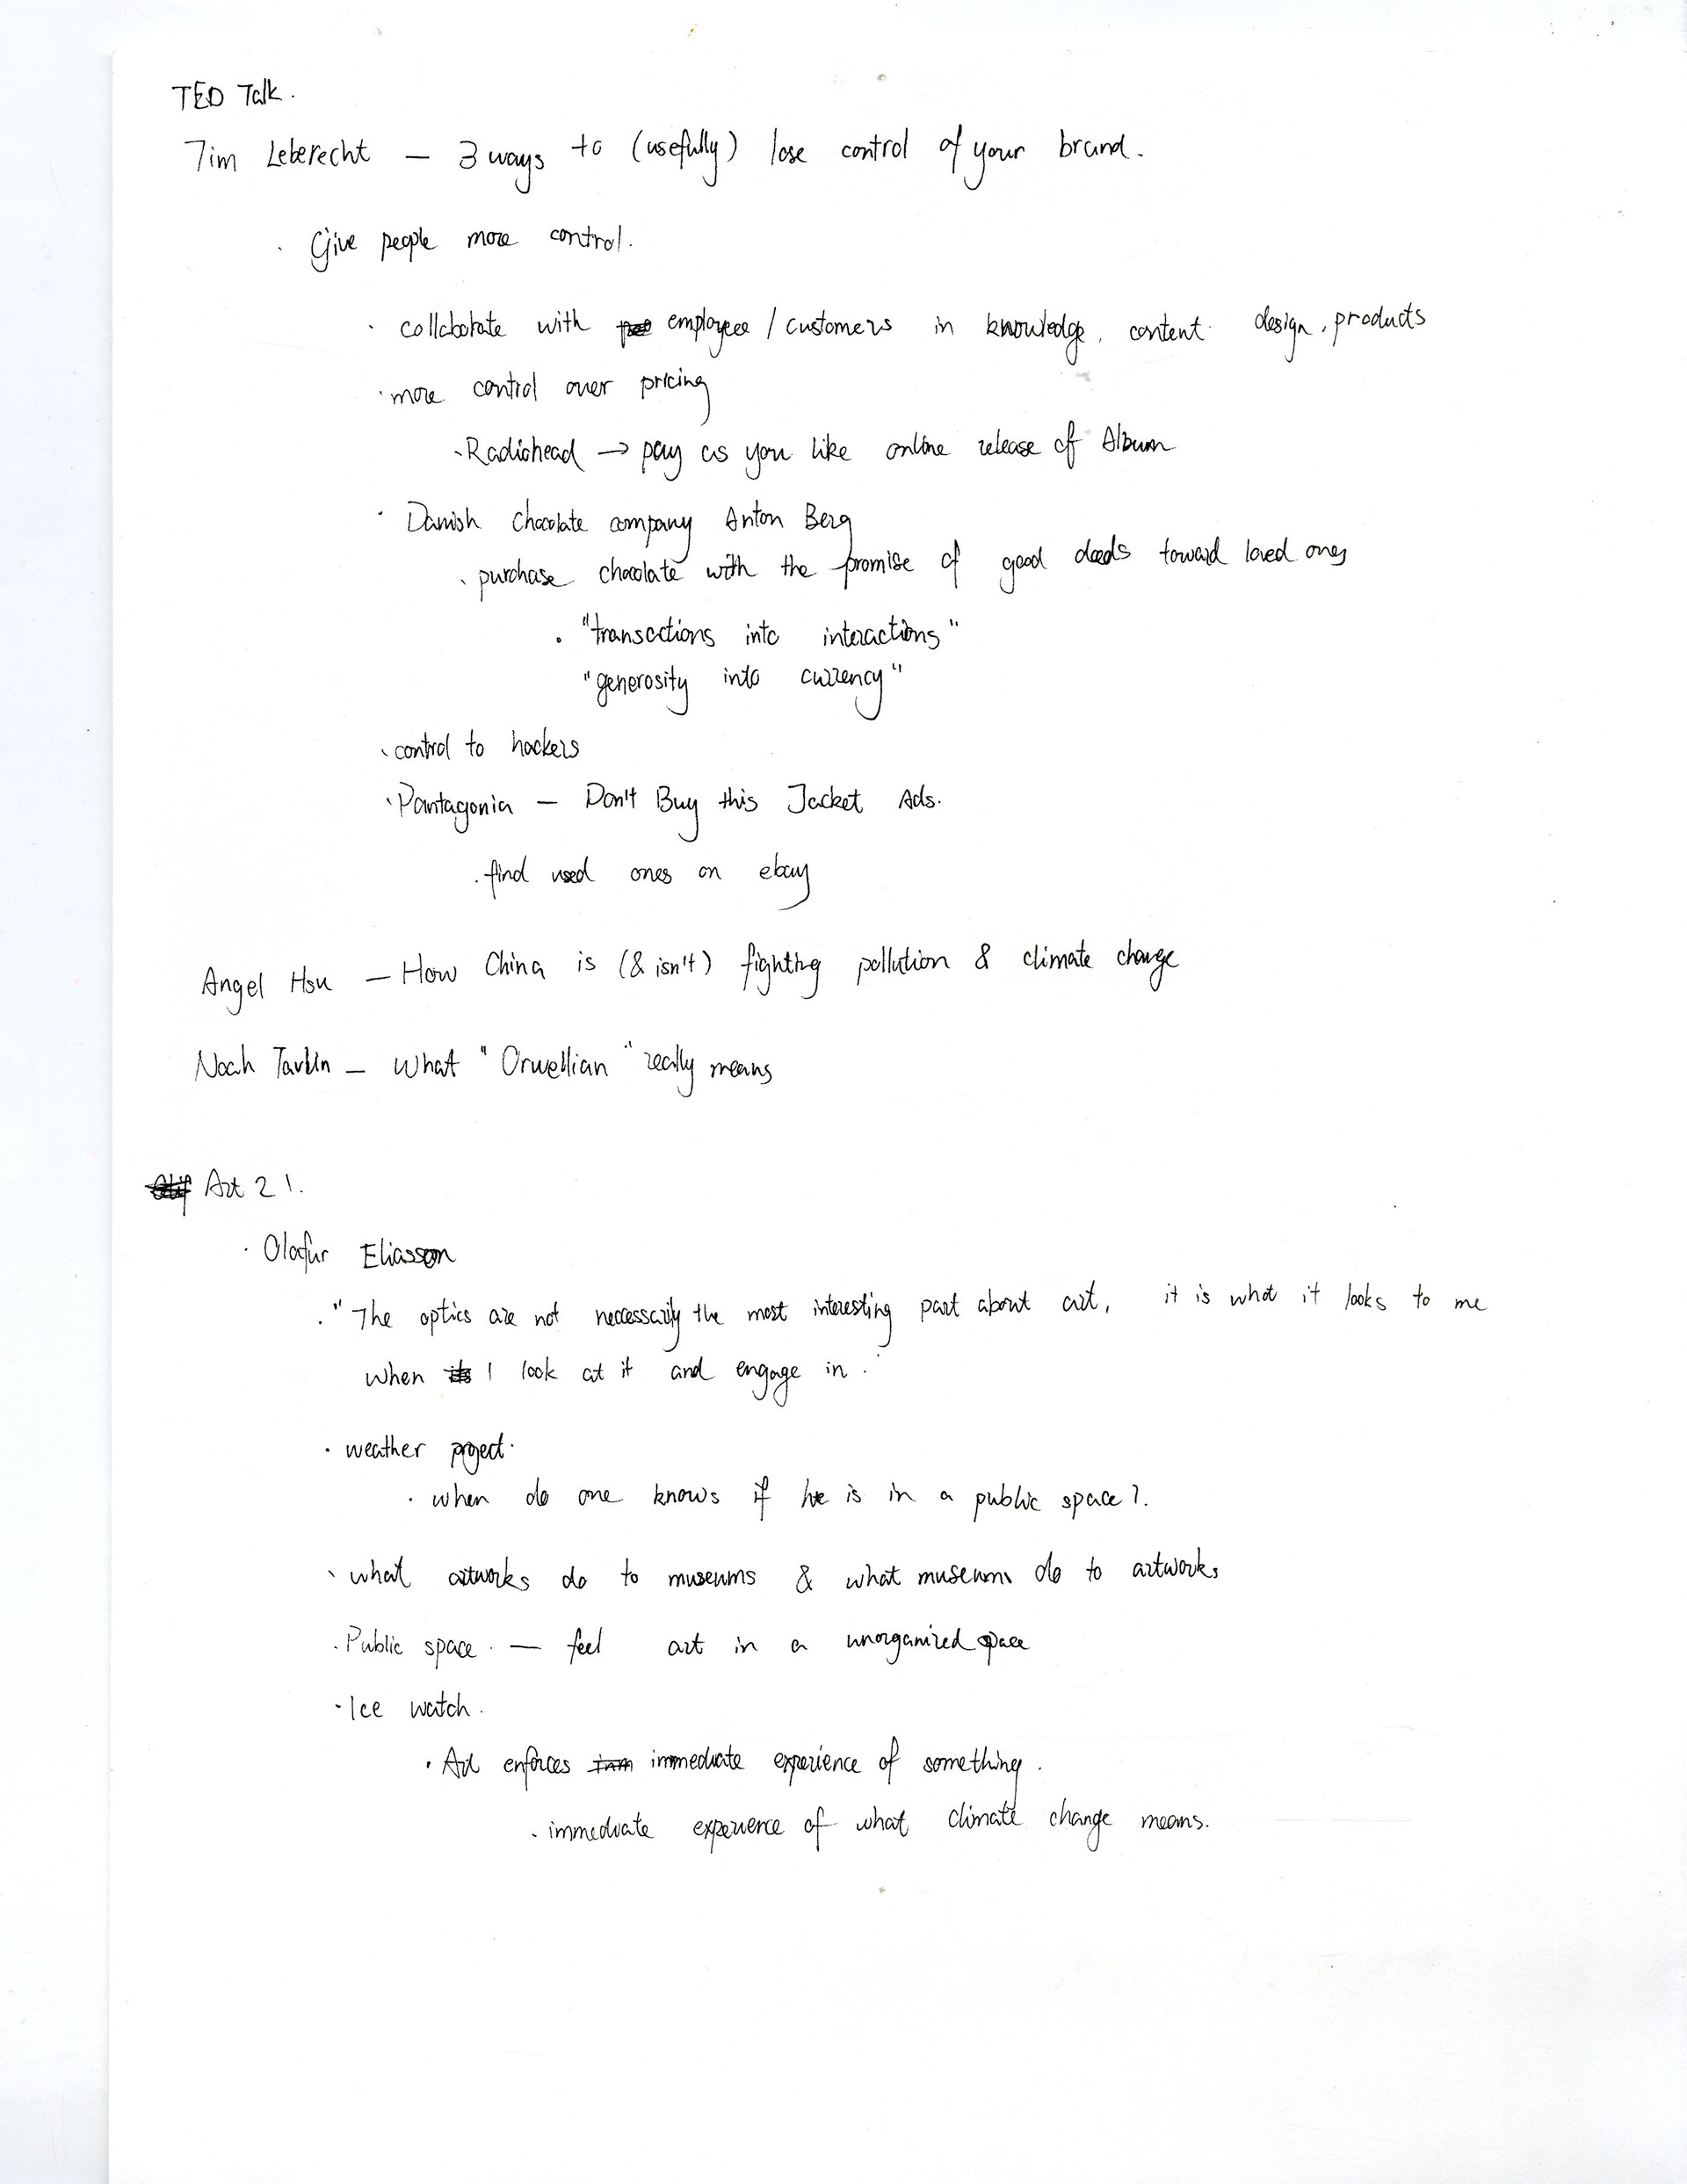 TED Talk.
Tim Leberecht — 3 ways to (usefully) lose control of your brand.
· Give people more control.
· collaborate with employee / customers in knowledge, content design, products
· more control over pricing
· Radiohead → pay as you like online release of Album
· Danish Chocolate company Anton Berg
· purchase chocolate with the promise of good deeds toward loved ones
· "transactions into interactions"
"generosity into currency"
· control to hackers
· Pantagonia — Don't Buy this Jacket Ads.
· find used ones on ebay
Angel Hsu — How China is (& isn't) fighting pollution & climate change
Noah Tavlin — What "Orwellian" really means
Art 21.
· Olafur Eliasson
· "The optics are not necessarily the most interesting part about art, it is what it looks to me
when I look at it and engage in."
· weather project.
· when do one knows if he is in a public space?.
· what artworks do to museums & what museums do to artworks
· Public space. — feel art in a unorganized space
· Ice watch.
· Art enforces immediate experience of something.
· immediate experience of what climate change means.